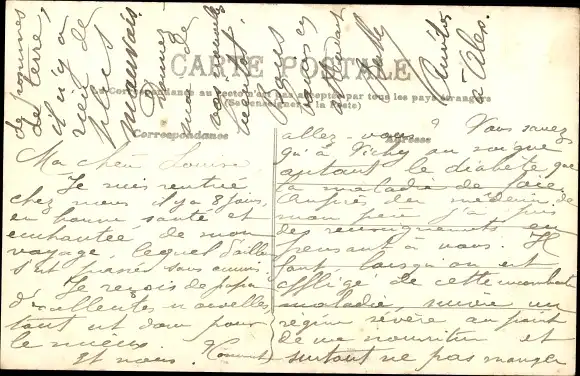 CARTE POSTALE
Correspondance au recto n'est pas acceptée par tous les pays étrangers
(Se renseigner à la Poste)
Correspondance
Adresse
Ma chère Louise
Je suis rentrée
chez nous il y a 8 jours,
en bonne santé et
enchantée de mon
voyage, lequel d'ailleurs
s'est passé sans ennuis.
Je reçois de papa
d'excellentes nouvelles
tout est donc pour
le mieux.
Et vous. Comment
allez-vous? Vous savez
qu'à Vichy on soigne
autant le diabète que
la maladie de foie.
Auprès du médecin de
mon père j'ai pris
des renseignements en
pensant à vous. Il
faut lorsqu'on est
affligé de cette
maladie, suivre un
régime sévère au point
de vue nourriture et
surtout ne pas manger
de pommes
de terre,
il n'y a
rien de
plus
mauvais.
Donnez
moi de
vos nouvelles
Amitiés
à Alex.